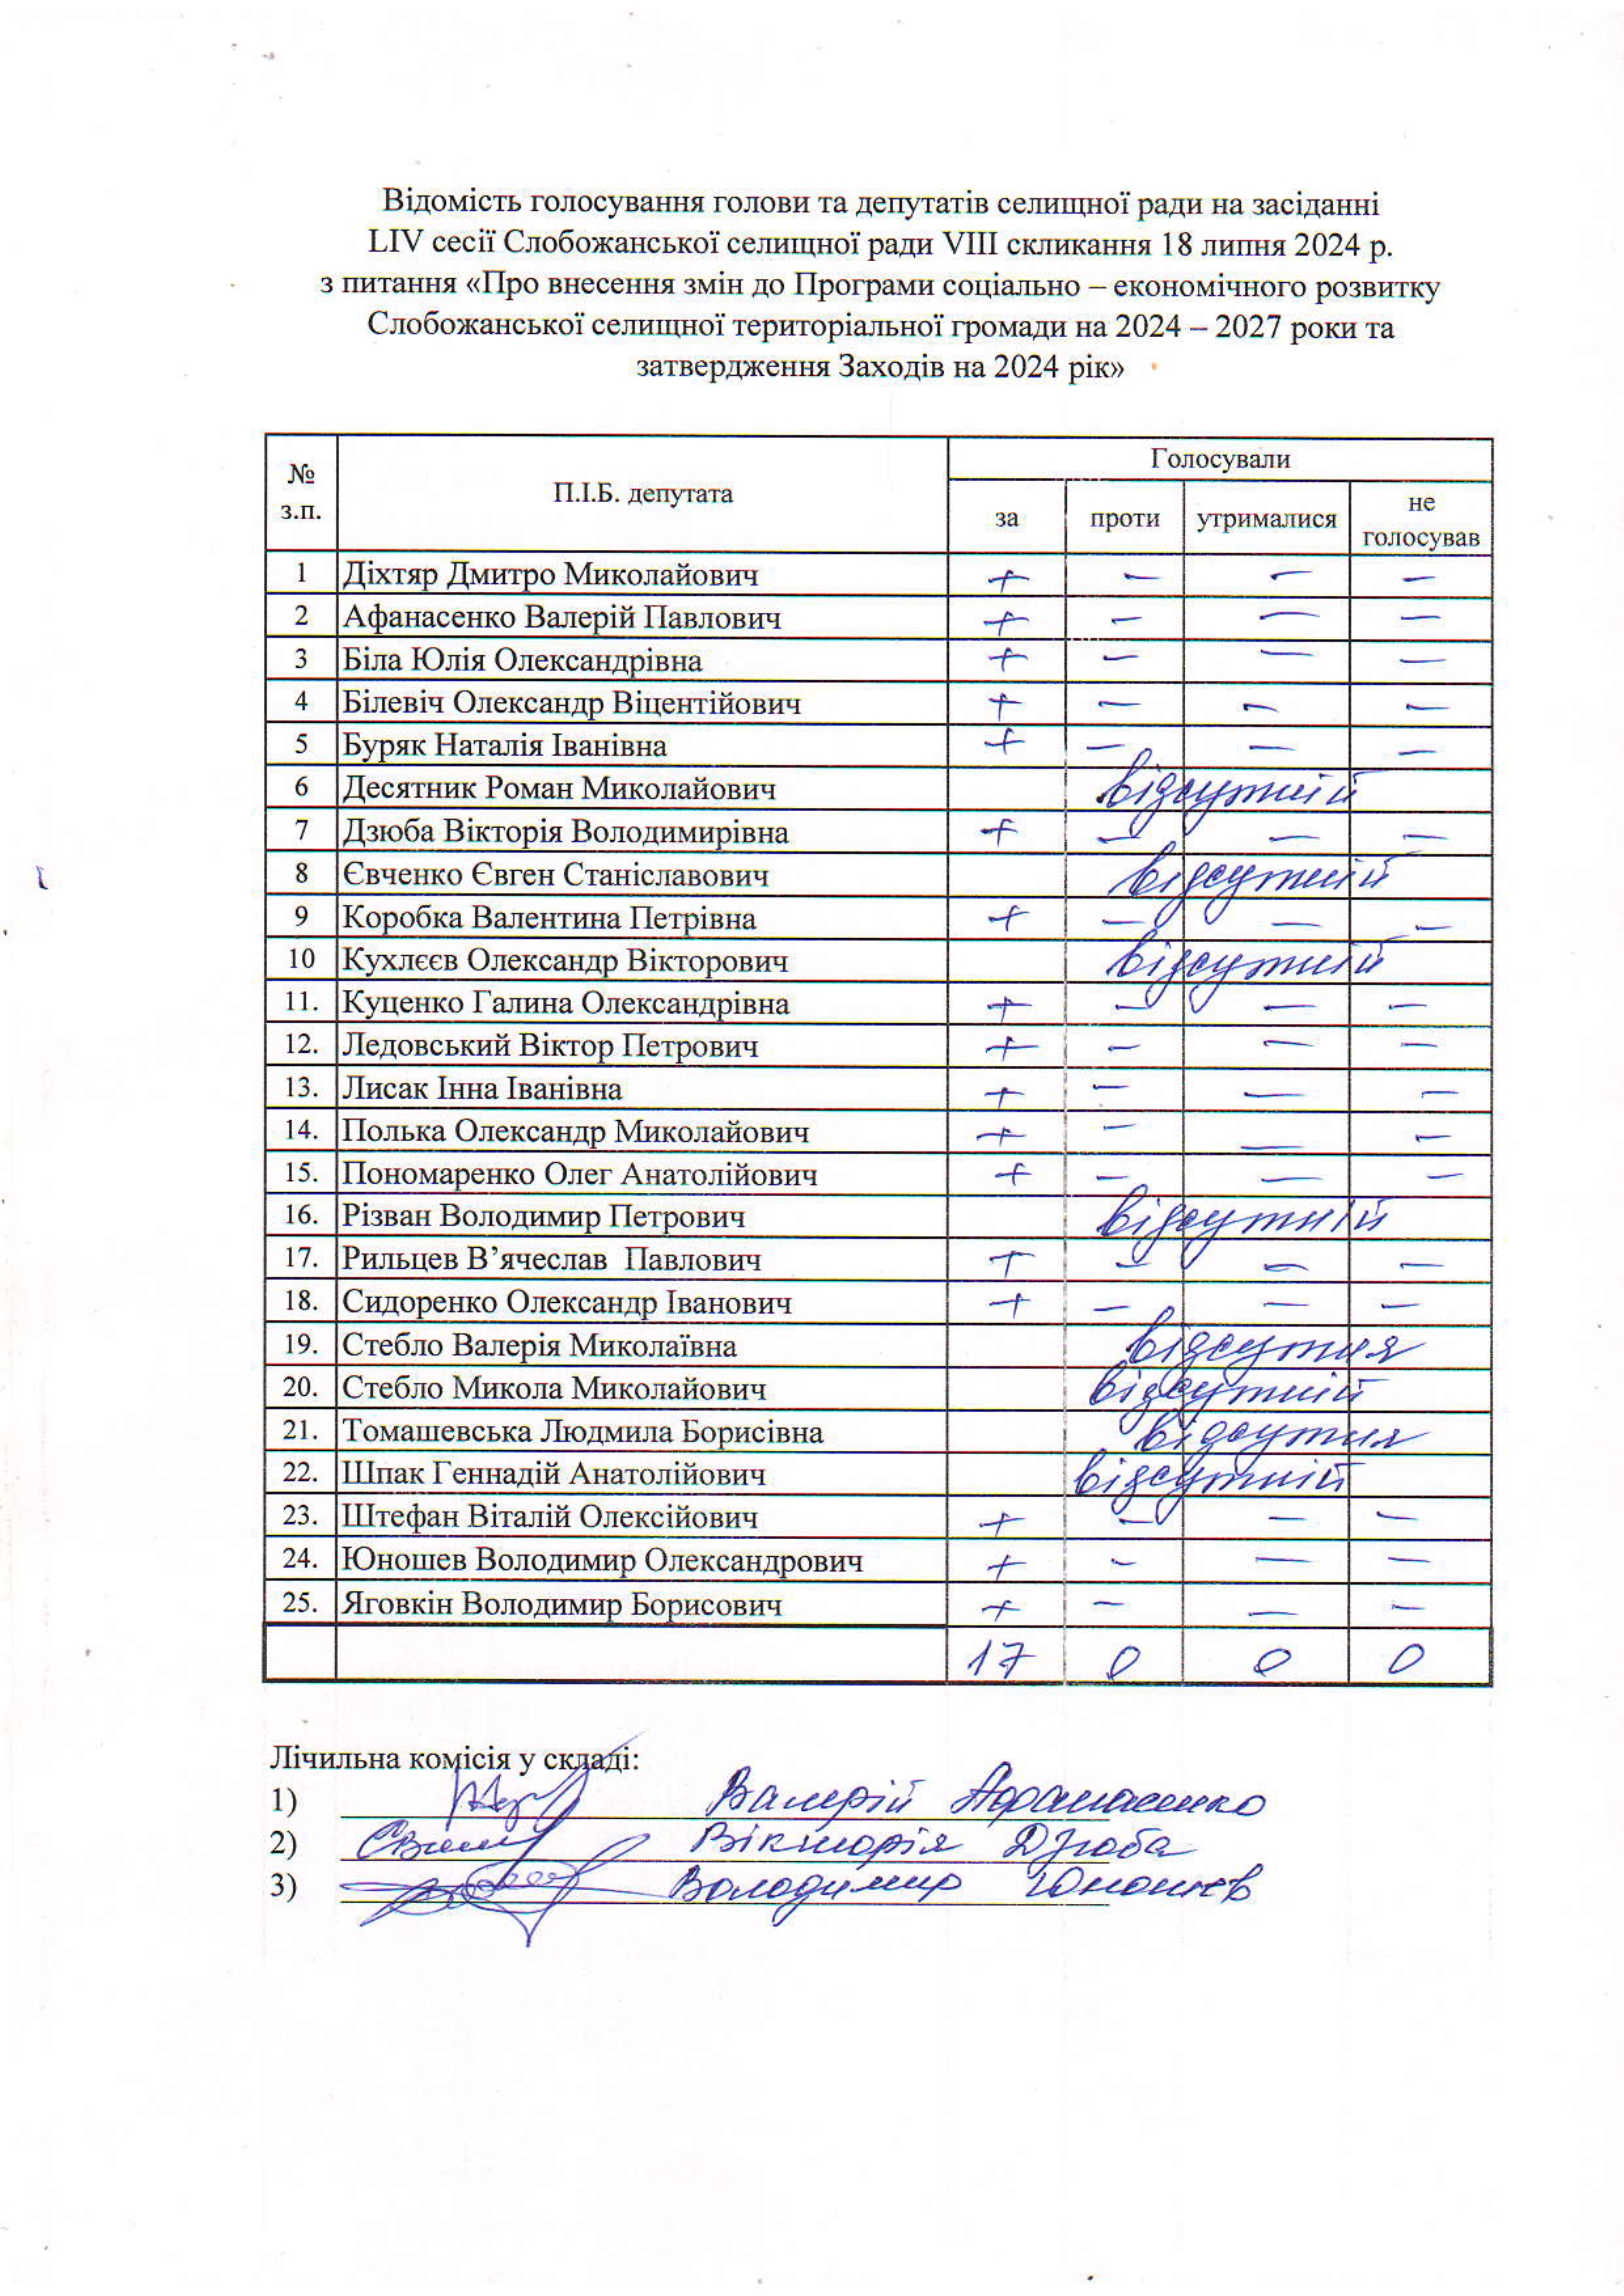 Відомість голосування голови та депутатів селищної ради на засіданні
LIV сесії Слобожанської селищної ради VIII скликання 18 липня 2024 р.
з питання «Про внесення змін до Програми соціально – економічного розвитку
Слобожанської селищної територіальної громади на 2024 – 2027 роки та
затвердження Заходів на 2024 рік»
№ з.п. П.І.Б. депутата Голосували
за проти утрималися не голосував
1 Діхтяр Дмитро Миколайович + – – –
2 Афанасенко Валерій Павлович + – – –
3 Біла Юлія Олександрівна + – – –
4 Білевіч Олександр Віцентійович + – – –
5 Буряк Наталія Іванівна + – – –
6 Десятник Роман Миколайович відсутній
7 Дзюба Вікторія Володимирівна + – – –
8 Євченко Євген Станіславович відсутній
9 Коробка Валентина Петрівна + – – –
10 Кухлєєв Олександр Вікторович відсутній
11. Куценко Галина Олександрівна + – – –
12. Ледовський Віктор Петрович + – – –
13. Лисак Інна Іванівна + – – –
14. Полька Олександр Миколайович + – – –
15. Пономаренко Олег Анатолійович + – – –
16. Різван Володимир Петрович відсутній
17. Рильцев В’ячеслав Павлович + – – –
18. Сидоренко Олександр Іванович + – – –
19. Стебло Валерія Миколаївна відсутня
20. Стебло Микола Миколайович відсутній
21. Томашевська Людмила Борисівна відсутня
22. Шпак Геннадій Анатолійович відсутній
23. Штефан Віталій Олексійович + – – –
24. Юношев Володимир Олександрович + – – –
25. Яговкін Володимир Борисович + – – –
17 0 0 0
Лічильна комісія у складі:
1) Валерій Афанасенко
2) Вікторія Дзюба
3) Володимир Юношев